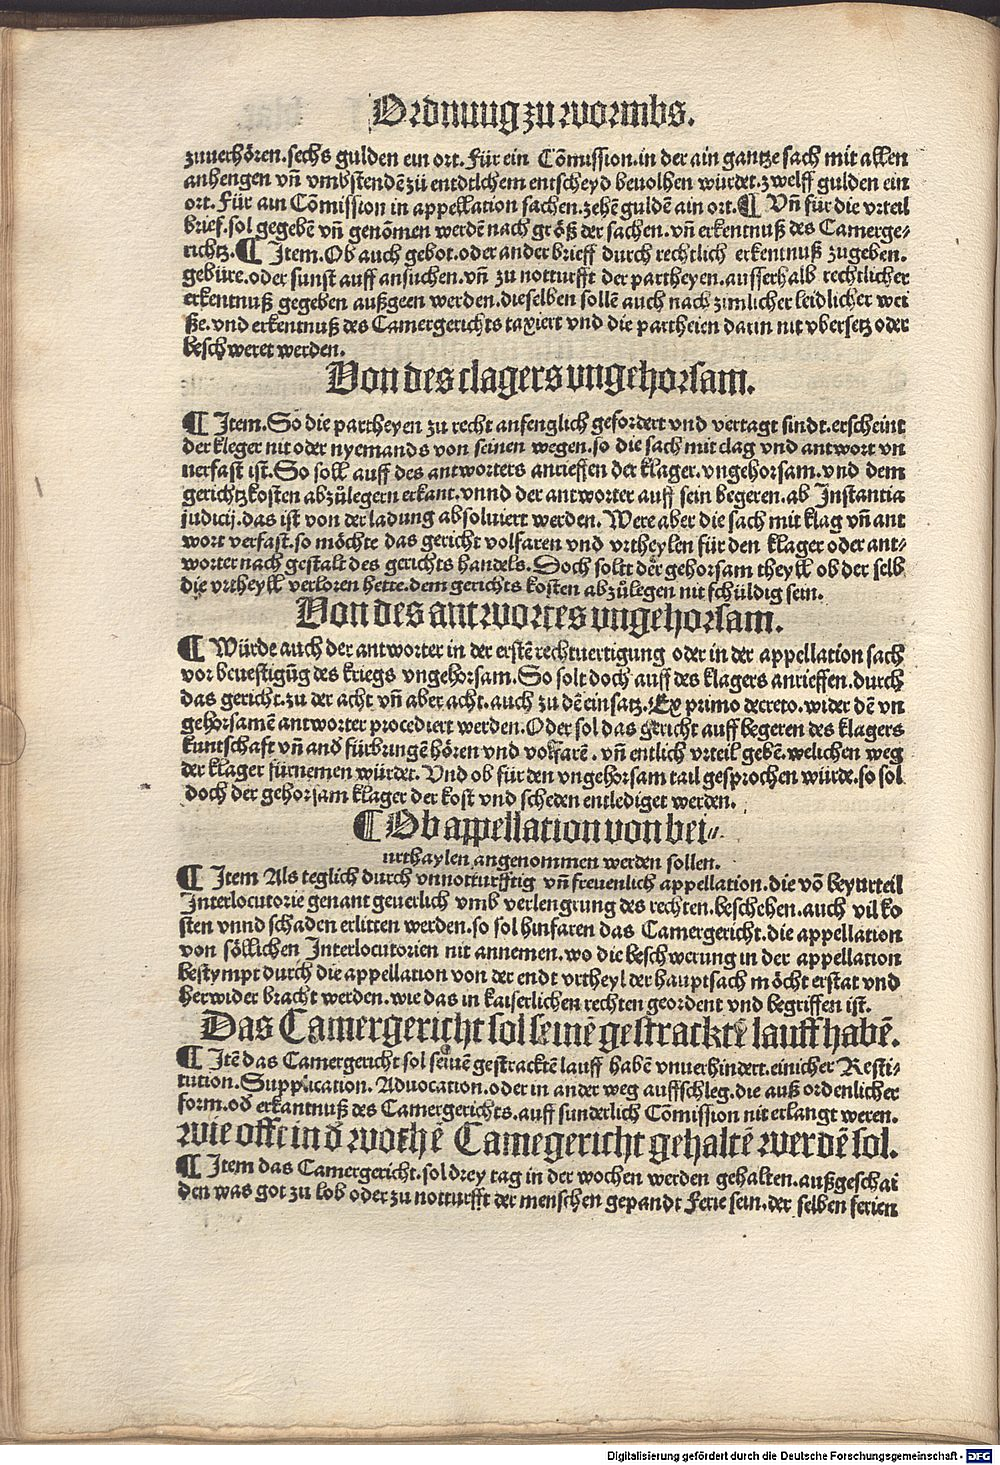 Ordnung zu wormbs.
zuuerhören.sechs gulden ein ort.Für ein Cōmission.in der ain gantze sach mit allen
anhengen vn̄ vmbstendē zů entdtlchem entscheyd beuolhen würdet.zwelff gulden ein
ort.Für ain Cōmission in appellation sachen.zehē guldē ain ort.¶ Vn̄ für die vrteil
brief.sol gegebē vn̄ genōmen werdē nach größ der sachen.vn̄ erkentnuß des Camerge⸗
richtz.¶ Item.Ob auch gebot.oder ander brieff durch rechtlich erkentnuß zugeben.
gebüre.oder sunst auff ansuchen.vn̄ zu notturfft der partheyen.ausserhalb rechtlicher
erkentnuß gegeben außgeen werden.dieselben sollē auch nach zimlicher leidlicher wei
ße.vnd erkentnuß des Camergerichts taxiert vnd die partheien darin nit vbersetz oder
beschweret werden.
Von des clagers vngehorsam.
¶ Item.So die partheyen zu recht anfenglich gefordert vnd vertagt sindt.erscheint
der kleger nit oder nyemands von seinen wegen.so die sach mit clag vnd antwort vn
uerfast ist.So soll auff des antworters anrieffen der klager.vngehorsam.vnd dem
gerichtzkosten abzůlegern erkant.vnnd der antworter auff sein begeren.ab Instantia
judicij.das ist von der ladung absoluiert werden.Were aber die sach mit klag vn̄ ant
wort verfast.so möchte das gericht volfaren vnd vrtheylen für den klager oder ant⸗
worter nach gestalt des gerichts handels.Doch soltt der gehorsam theyll ob der selb
die vrtheyll verloren hette.dem gerichts kosten abzůlegen nit schüldig sein.
Von des antwortes vngehorsam.
¶ Würde auch der antworter in der erstē rechtuertigung oder in der appellation sach
vor beuestigūg des kriegs vngehorsam.So solt doch auff des klagers anrieffen.durch
das gericht.zu der acht vn̄ aber acht.auch zu dē einsatz.Ex primo decreto.wider dē vn
gehorsamē antworter procediert werden.Oder sol das gericht auff begeren des klagers
kuntschaft vn̄ and̄ fürbringē hören vnd volfarē.vn̄ entlich vrteil gebē.welichen weg
der klager fürnemen würdet.Vnd ob für den vngehorsam tail gesprochen würde.so sol
doch der gehorsam klager der kost vnd scheden entlediget werden.
¶ Ob appellation von bei⸗
urthaylen angenommen werden sollen.
¶ Item Als teglich durch vnnotturfftig vn̄ freuenlich appellation.die vō beyurteil
Interlocutorie genant geuerlich vmb verlengrung des rechten.beschehen.auch vil ko
sten vnnd schaden erlitten werden.so sol hinfaren das Camergericht.die appellation
von söllichen Interlocutorien nit annemen.wo die beschwerung in der appellation
bestympt durch die appellation von der endt vrtheyl der hauptsach möcht erstat vnd
herwider bracht werden.wie das in kaiserlichen rechten geordent vnd begriffen ist.
Das Camergericht sol seinē gestracktē lauff habē.
¶ Itē das Camergericht sol seinen gestracktē lauff habē vnuerhindert.einicher Resti⸗
tution.Supplication.Aduocation.oder in ander weg auffschleg.die auß ordenlicher
form.od̄ erkantnuß des Camergerichts.auff sunderlich Cōmission nit erlangt weren.
wie offt in d̄ wochē Camegericht gehaltē werdē sol.
¶ Item das Camergericht.sol drey tag in der wochen werden gehalten.außgeschai
den was got zu lob oder zu notturfft der menschen gepandt Ferie sein.der selben ferien
Digitalisierung gefördert durch die Deutsche Forschungsgemeinschaft - DFG